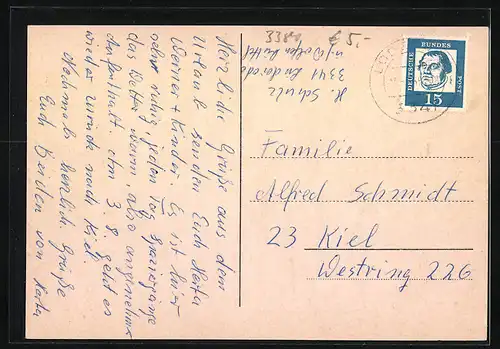 3381 € 5,-
H. Schulz
3341
ü/Wolfenbüttel
DEUTSCHE BUNDESPOST
15
3341
Herzliche Grüße aus dem
Urlaub senden Euch Herta
Werner + Kinder. Es ist hier
sehr ruhig, jeden Tag Spaziergänge
das Wetter warm, also angenehmer
Aufenthalt. Am 3.8. geht es
wieder zurück nach Kiel.
Nochmals herzliche Grüße
Euch Beiden von Herta
Familie
Alfred Schmidt
23 Kiel
Westring 226